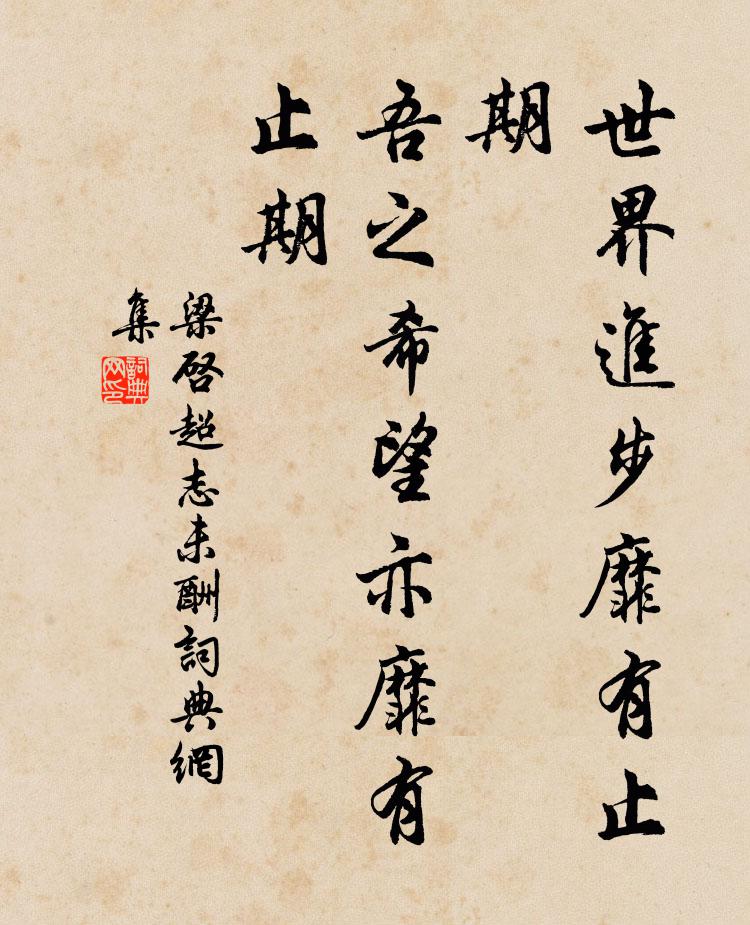 世界進步靡有止
期
吾之希望亦靡有
止期
梁啓超志未酬詞典網
集
詞典
网印